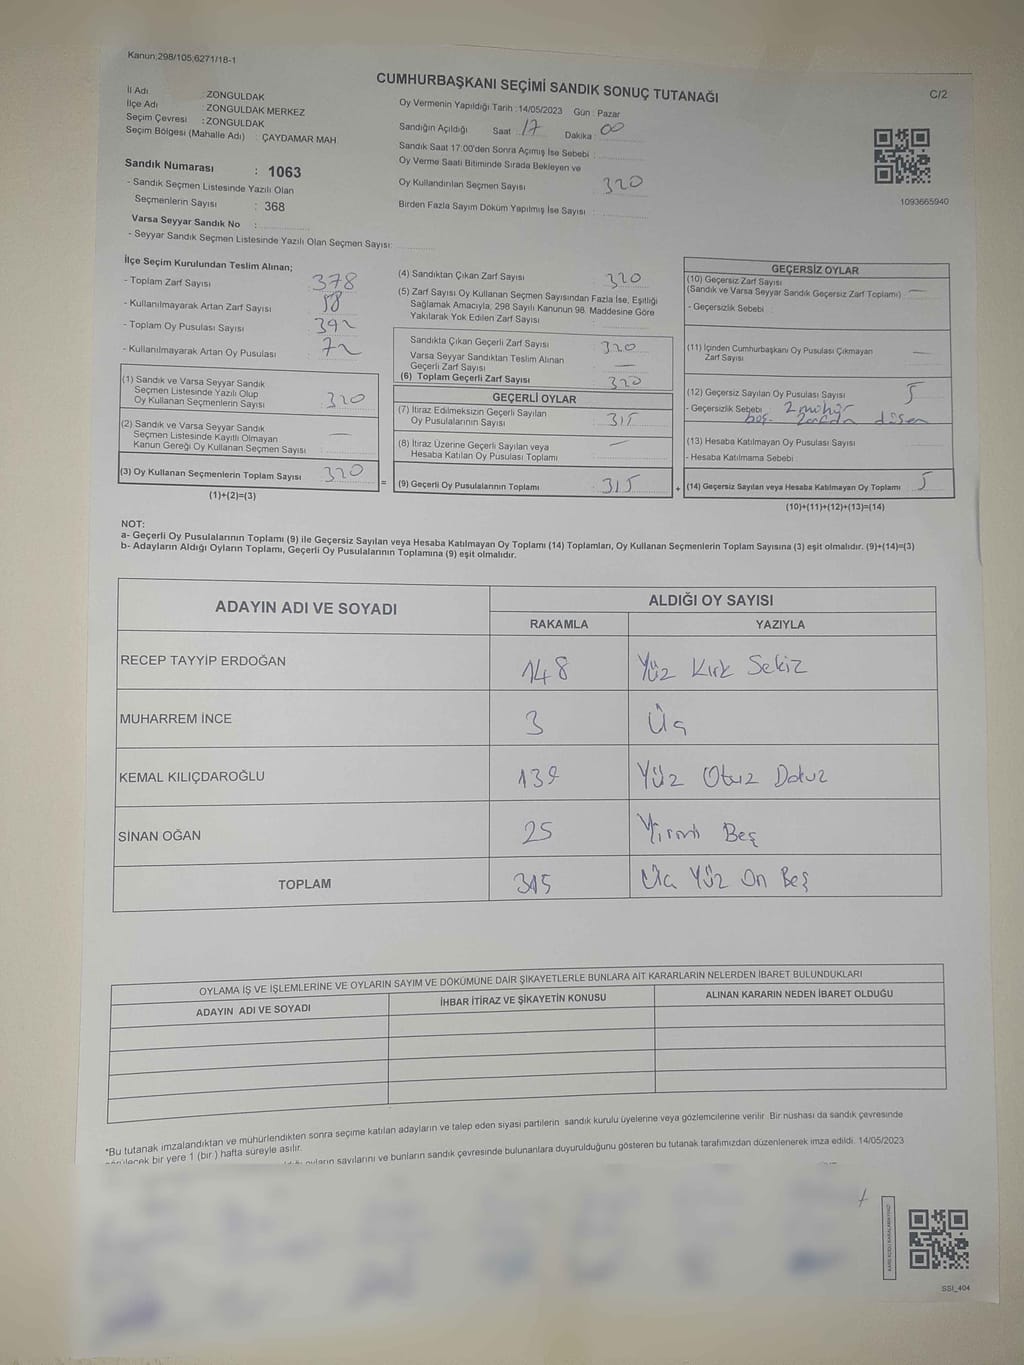 Kanun;298/105;6271/18-1
CUMHURBAŞKANI SEÇİMİ SANDIK SONUÇ TUTANAĞI
C/2
İl Adı : ZONGULDAK
İlçe Adı : ZONGULDAK MERKEZ
Seçim Çevresi : ZONGULDAK
Seçim Bölgesi (Mahalle Adı) : ÇAYDAMAR MAH
Oy Vermenin Yapıldığı Tarih : 14/05/2023 Gün : Pazar
Sandığın Açıldığı Saat : 17 Dakika : 00
Sandık Saat 17:00'den Sonra Açımış İse Sebebi :
Oy Verme Saati Bitiminde Sırada Bekleyen ve
Oy Kullandırılan Seçmen Sayısı 320
Birden Fazla Sayım Döküm Yapılmış İse Sayısı :
1093665940
Sandık Numarası : 1063
- Sandık Seçmen Listesinde Yazılı Olan
Seçmenlerin Sayısı : 368
Varsa Seyyar Sandık No :
- Seyyar Sandık Seçmen Listesinde Yazılı Olan Seçmen Sayısı:
İlçe Seçim Kurulundan Teslim Alınan;
- Toplam Zarf Sayısı 378
- Kullanılmayarak Artan Zarf Sayısı 58
- Toplam Oy Pusulası Sayısı 392
- Kullanılmayarak Artan Oy Pusulası 72
(1) Sandık ve Varsa Seyyar Sandık
Seçmen Listesinde Yazılı Olup
Oy Kullanan Seçmenlerin Sayısı 320
(2) Sandık ve Varsa Seyyar Sandık
Seçmen Listesinde Kayıtlı Olmayan
Kanun Gereği Oy Kullanan Seçmen Sayısı —
(3) Oy Kullanan Seçmenlerin Toplam Sayısı 320
(1)+(2)=(3)
=
(4) Sandıktan Çıkan Zarf Sayısı 320
(5) Zarf Sayısı Oy Kullanan Seçmen Sayısından Fazla İse, Eşitliği
Sağlamak Amacıyla, 298 Sayılı Kanunun 98. Maddesine Göre
Yakılarak Yok Edilen Zarf Sayısı :
Sandıkta Çıkan Geçerli Zarf Sayısı 320
Varsa Seyyar Sandıktan Teslim Alınan
Geçerli Zarf Sayısı —
(6) Toplam Geçerli Zarf Sayısı 320
GEÇERLİ OYLAR
(7) İtiraz Edilmeksizin Geçerli Sayılan
Oy Pusulalarının Sayısı 315
(8) İtiraz Üzerine Geçerli Sayılan veya
Hesaba Katılan Oy Pusulası Toplamı —
(9) Geçerli Oy Pusulalarının Toplamı 315
+
GEÇERSİZ OYLAR
(10) Geçersiz Zarf Sayısı
(Sandık ve Varsa Seyyar Sandık Geçersiz Zarf Toplamı) —
- Geçersizlik Sebebi :
(11) İçinden Cumhurbaşkanı Oy Pusulası Çıkmayan
Zarf Sayısı —
(12) Geçersiz Sayılan Oy Pusulası Sayısı 5
- Geçersizlik Sebebi 2 mühür
boş. zarftan düşen
(13) Hesaba Katılmayan Oy Pusulası Sayısı
- Hesaba Katılmama Sebebi
(14) Geçersiz Sayılan veya Hesaba Katılmayan Oy Toplamı 5
(10)+(11)+(12)+(13)=(14)
NOT:
a- Geçerli Oy Pusulalarının Toplamı (9) ile Geçersiz Sayılan veya Hesaba Katılmayan Oy Toplamı (14) Toplamları, Oy Kullanan Seçmenlerin Toplam Sayısına (3) eşit olmalıdır. (9)+(14)=(3)
b- Adayların Aldığı Oyların Toplamı, Geçerli Oy Pusulalarının Toplamına (9) eşit olmalıdır.
ADAYIN ADI VE SOYADI
ALDIĞI OY SAYISI
RAKAMLA YAZIYLA
RECEP TAYYİP ERDOĞAN 148 Yüz Kırk Sekiz
MUHARREM İNCE 3 Üç
KEMAL KILIÇDAROĞLU 139 Yüz Otuz Dokuz
SİNAN OĞAN 25 Yirmi Beş
TOPLAM 315 Üç Yüz On Beş
OYLAMA İŞ VE İŞLEMLERİNE VE OYLARIN SAYIM VE DÖKÜMÜNE DAİR ŞİKAYETLERLE BUNLARA AİT KARARLARIN NELERDEN İBARET BULUNDUKLARI
ADAYIN ADI VE SOYADI İHBAR İTİRAZ VE ŞİKAYETİN KONUSU ALINAN KARARIN NEDEN İBARET OLDUĞU
*Bu tutanak imzalandıktan ve mühürlendikten sonra seçime katılan adayların ve talep eden siyasi partilerin sandık kurulu üyelerine veya gözlemcilerine verilir. Bir nüshası da sandık çevresinde
bir yere 1 (bir) hafta süreyle asılır.
oyların sayılarını ve bunların sandık çevresinde bulunanlara duyurulduğunu gösteren bu tutanak tarafımızdan düzenlenerek imza edildi. 14/05/2023
SSI_404